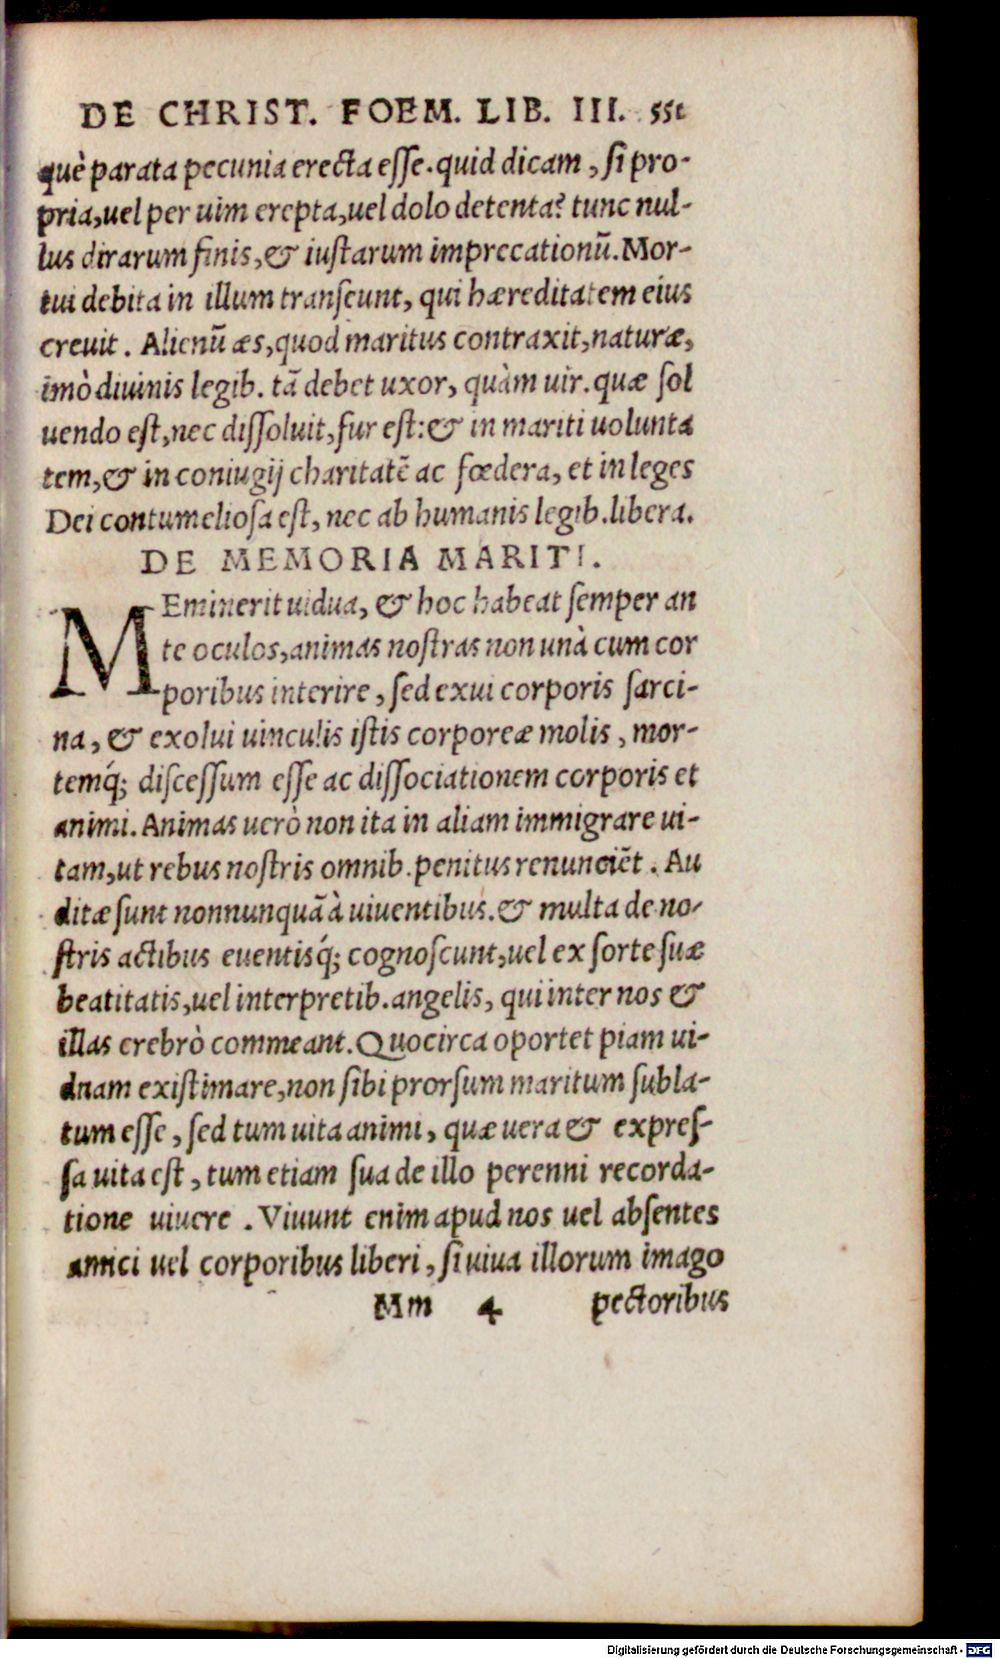 DE CHRIST. FOEM. LIB. III. 551
què parata pecunia erecta esse. quid dicam, si pro-
pria, uel per uim erepta, uel dolo detenta? tunc nul-
lus dirarum finis, & iustarum imprecationũ. Mor-
tui debita in illum transeunt, qui hæreditatem eius
creuit. Alienũ æs, quod maritus contraxit, naturæ,
imò diuinis legib. tã debet uxor, quàm uir. quæ sol
uendo est, nec dissoluit, fur est: & in mariti uolunta
tem, & in coniugij charitatẽ ac fœdera, et in leges
Dei contumeliosa est, nec ab humanis legib. libera.
DE MEMORIA MARITI.
MEminerit uidua, & hoc habeat semper an
te oculos, animas nostras non unà cum cor
poribus interire, sed exui corporis sarci-
na, & exolui uinculis istis corporeæ molis, mor-
temq́; discessum esse ac dissociationem corporis et
animi. Animas uerò non ita in aliam immigrare ui-
tam, ut rebus nostris omnib. penitus renunciẽt. Au
ditæ sunt nonnunquã à uiuentibus. & multa de no-
stris actibus euentisq́; cognoscunt, uel ex sorte suæ
beatitatis, uel interpretib. angelis, qui inter nos &
illas crebrò commeant. Quocirca oportet piam ui-
duam existimare, non sibi prorsum maritum subla-
tum esse, sed tum uita animi, quæ uera & expres-
sa uita est, tum etiam sua de illo perenni recorda-
tione uiuere. Viuunt enim apud nos uel absentes
amici uel corporibus liberi, si uiua illorum imago
Mm 4 pectoribus
Digitalisierung gefördert durch die Deutsche Forschungsgemeinschaft - DFG